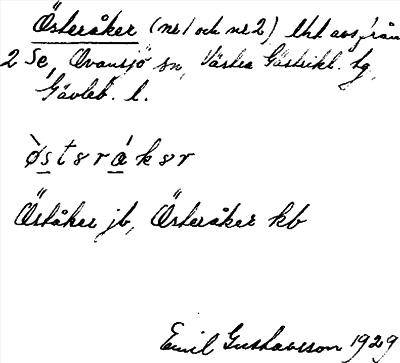 Österåker (nr 1 och nr 2) lht avs. från
2 Se, Ovansjö sn, Västra Gästrikl. hg,
Gävleb. l.
ø̀stsráksr
Öståker jb, Österåker kb
Emil Gustavsson 1929